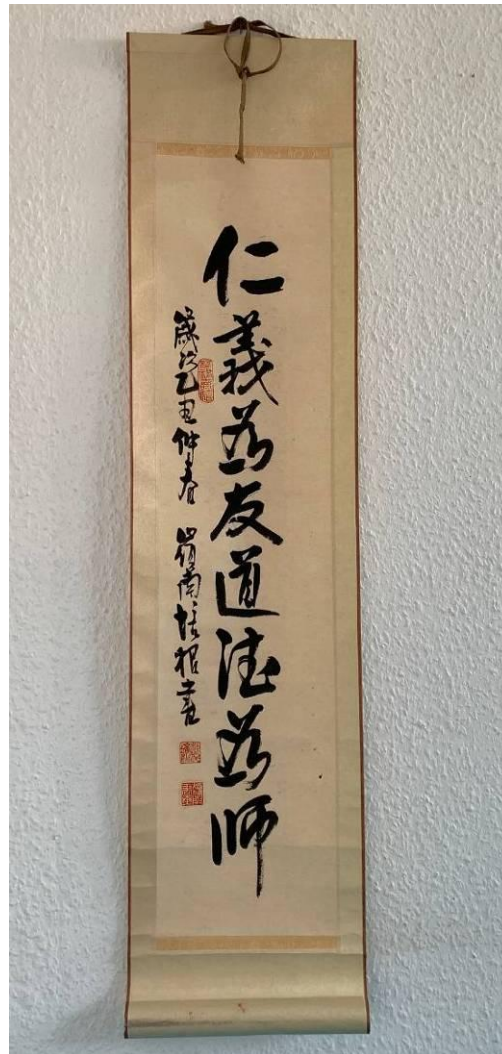 仁義為友道德為師
歲次乙丑仲春 嶺南培根書